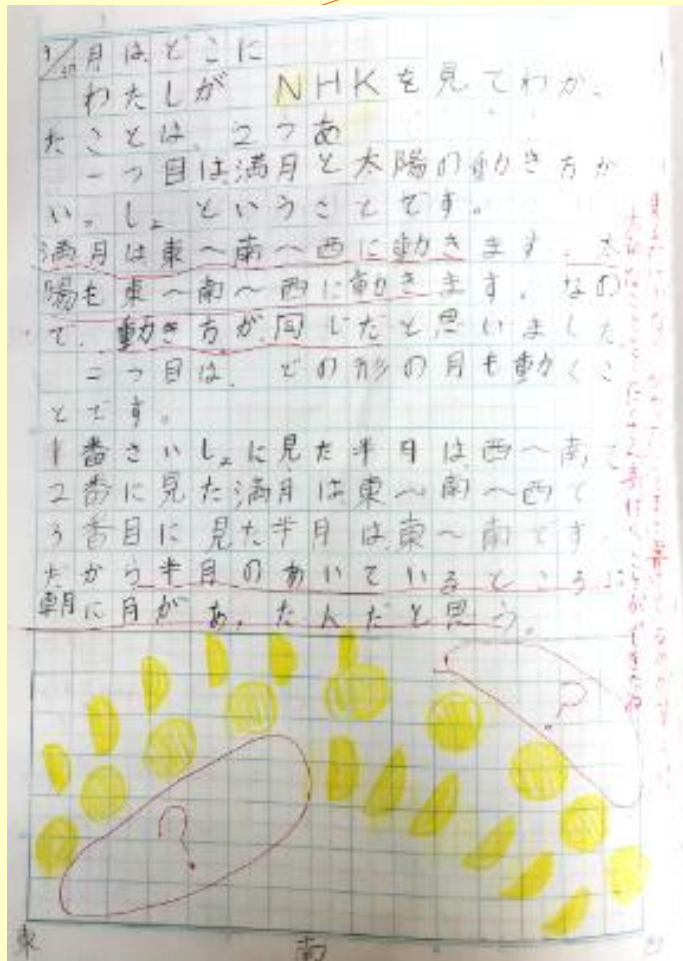 9/27 月はどこに
わたしが NHKを見てわかっ
たことは、2つあ
一つ目は、満月と太陽の動き方が
いっしょということです。
満月は東〜南〜西に動きます。太
陽も東〜南〜西に動きます。なの
で、動き方が、同じだと思いました
二つ目は、どの形の月も動くこ
とです。
1番さいしょに見た半月は西〜南で
2番に見た満月は東〜南〜西で
3番目に見た半月は、東〜南です。
だから半月のあいているところに
朝に月があったんだと思う。
?
?
東
南
西